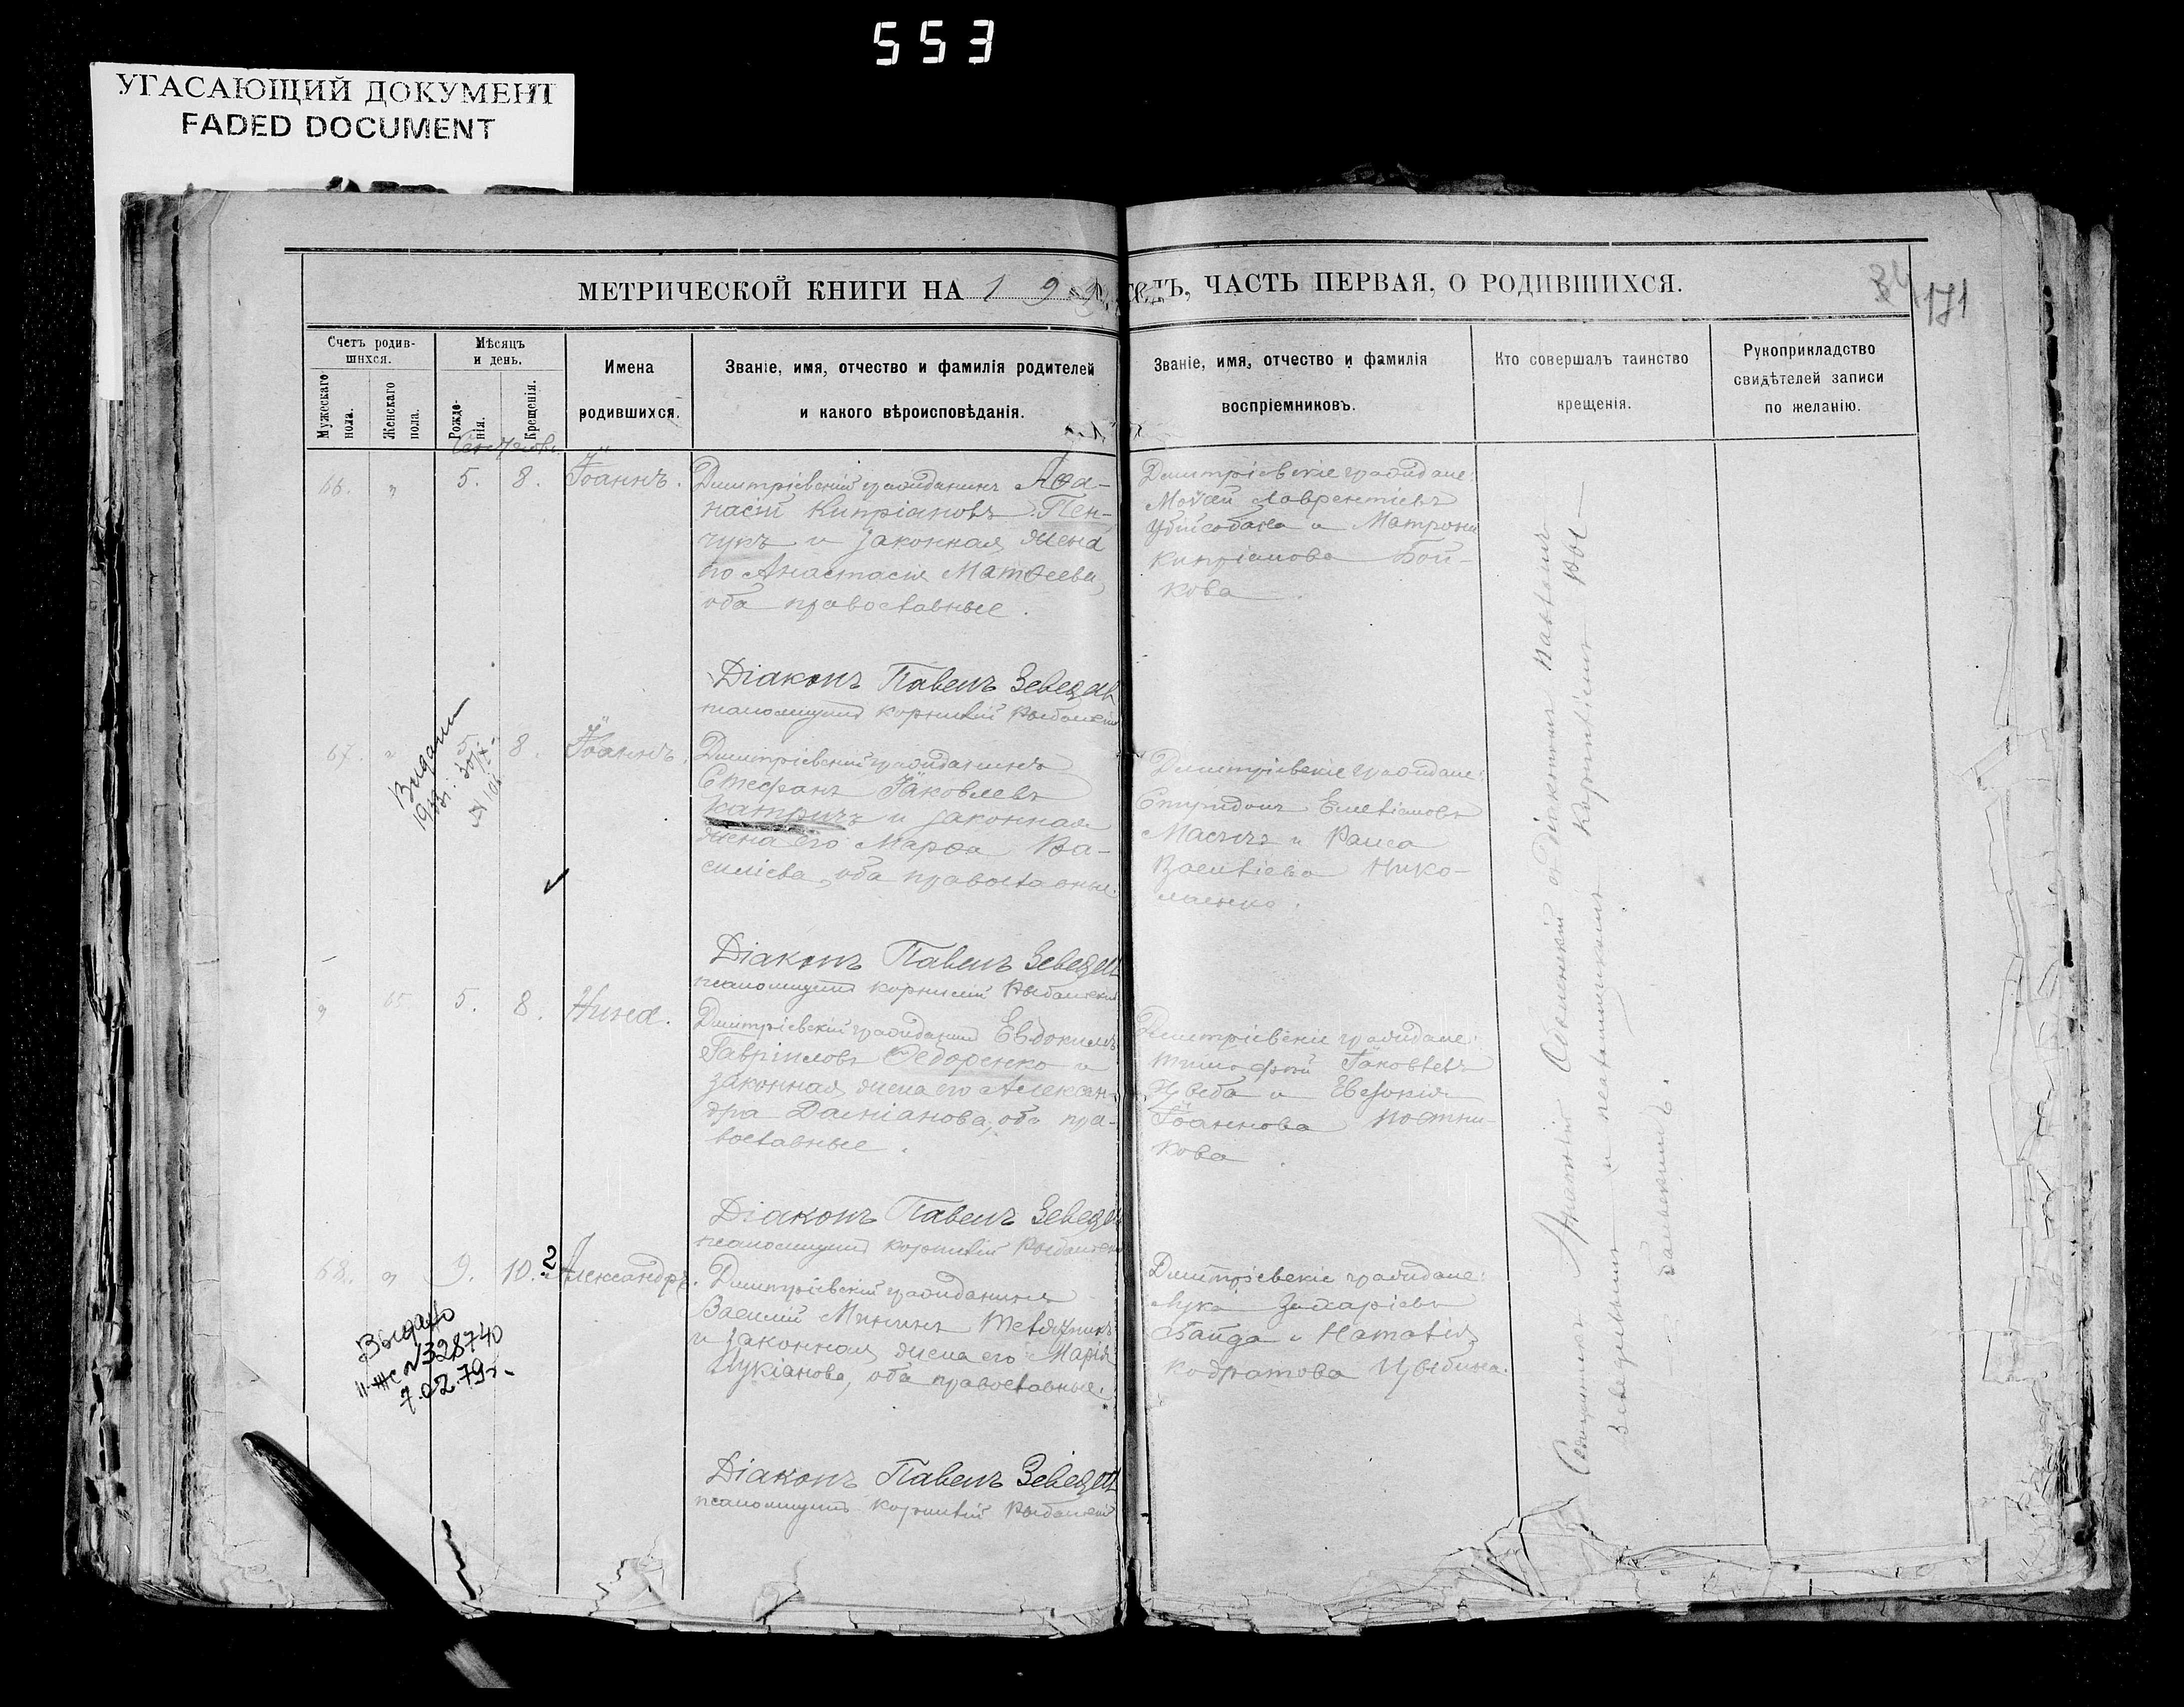 553
УГАСАЮЩИЙ ДОКУМЕНТ
FADED DOCUMENT
МЕТРИЧЕСКОЙ КНИГИ НА 1 9
ГОДЪ, ЧАСТЬ ПЕРВАЯ, О РОДИВШИХСЯ.
171
Счетъ родив-
шихся.
Мужескаго
пола.
Женскаго
пола.
Мѣсяцъ
и день.
Рожде-
нія.
Крещенія.
Имена
родившихся.
Званіе, имя, отчество и фамилія родителей
и какого вѣроисповѣданія.
Званіе, имя, отчество и фамилія
воспріемниковъ.
Кто совершалъ таинство
крещенія.
Рукоприкладство
свидѣтелей записи
по желанію.
66. " 5. 8. Іоаннъ.
Дмитріевскій гражданинъ Аѳа-
насій Кипріановъ Пен-
чукъ и законная жена
его Анастасія Матѳеева,
оба православные.
Діаконъ Павелъ Зеведей
псаломщикъ Корнилій
Дмитріевскіе граждане:
Мойсей Лаврентіевъ
и Матрона
Кипріанова Бой-
кова.
67. " 5. 8. Іоаннъ.
Дмитріевскій гражданинъ
Стефанъ Іаковлевъ
Катричъ и законная
жена его Марѳа Ва-
силіева, оба православные.
Діаконъ Павелъ Зеведей
псаломщикъ Корнилій
Дмитріевскіе граждане:
Спиридонъ Емеліановъ
и Раиса
Василіева Нико-
лаенко.
" 65. 5. 8. Нина.
Дмитріевскій гражданинъ Евдокимъ
Гавріиловъ Ѳедоренко и
законная жена его Алексан-
дра Даміанова, оба пра-
вославные.
Діаконъ Павелъ Зеведей
псаломщикъ Корнилій
Дмитріевскіе граждане:
Тимофей Іаковлевъ
и Евдокія
Іоаннова Постни-
кова.
68. " 9. 10. Александръ.
Дмитріевскій гражданинъ
Василій Мининъ
и законная жена его Марія
Лукіанова, оба православные.
Діаконъ Павелъ Зеведей
псаломщикъ Корнилій
Дмитріевскіе граждане:
Лука Захаріевъ
Байда и Наталія
Кодратова
Выдано
II-ЖС №328740
7.02.79г.
Священникъ
съ Діакономъ Павломъ
и псаломщикомъ Корниліемъ Ры-